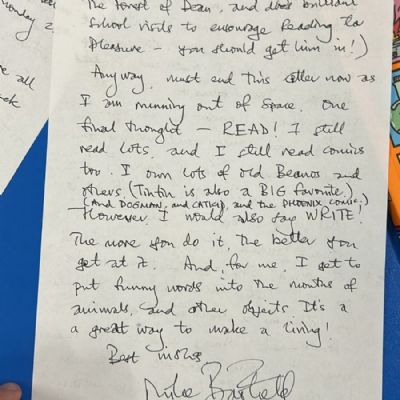 onday 2
re all
ck
The Forest of Dean, and does brilliant
School visits to encourage Reading for
Pleasure – you should get him in!)
Anyway, must end this letter now as
I am running out of space. One
final thought – READ! I still
read lots, and I still read comics
too. I own lots of old Beanos and
others (Tintin is also a BIG favourite.)
(And DOGMAN, and CATKID, and the PHOENIX comic.)
However, I would also say WRITE!
The more you do it, the better you
get at it. And, for me, I get to
put funny words into the mouths of
animals, and other objects. It's a
a great way to make a living!
Best wishes
Mike Barfield